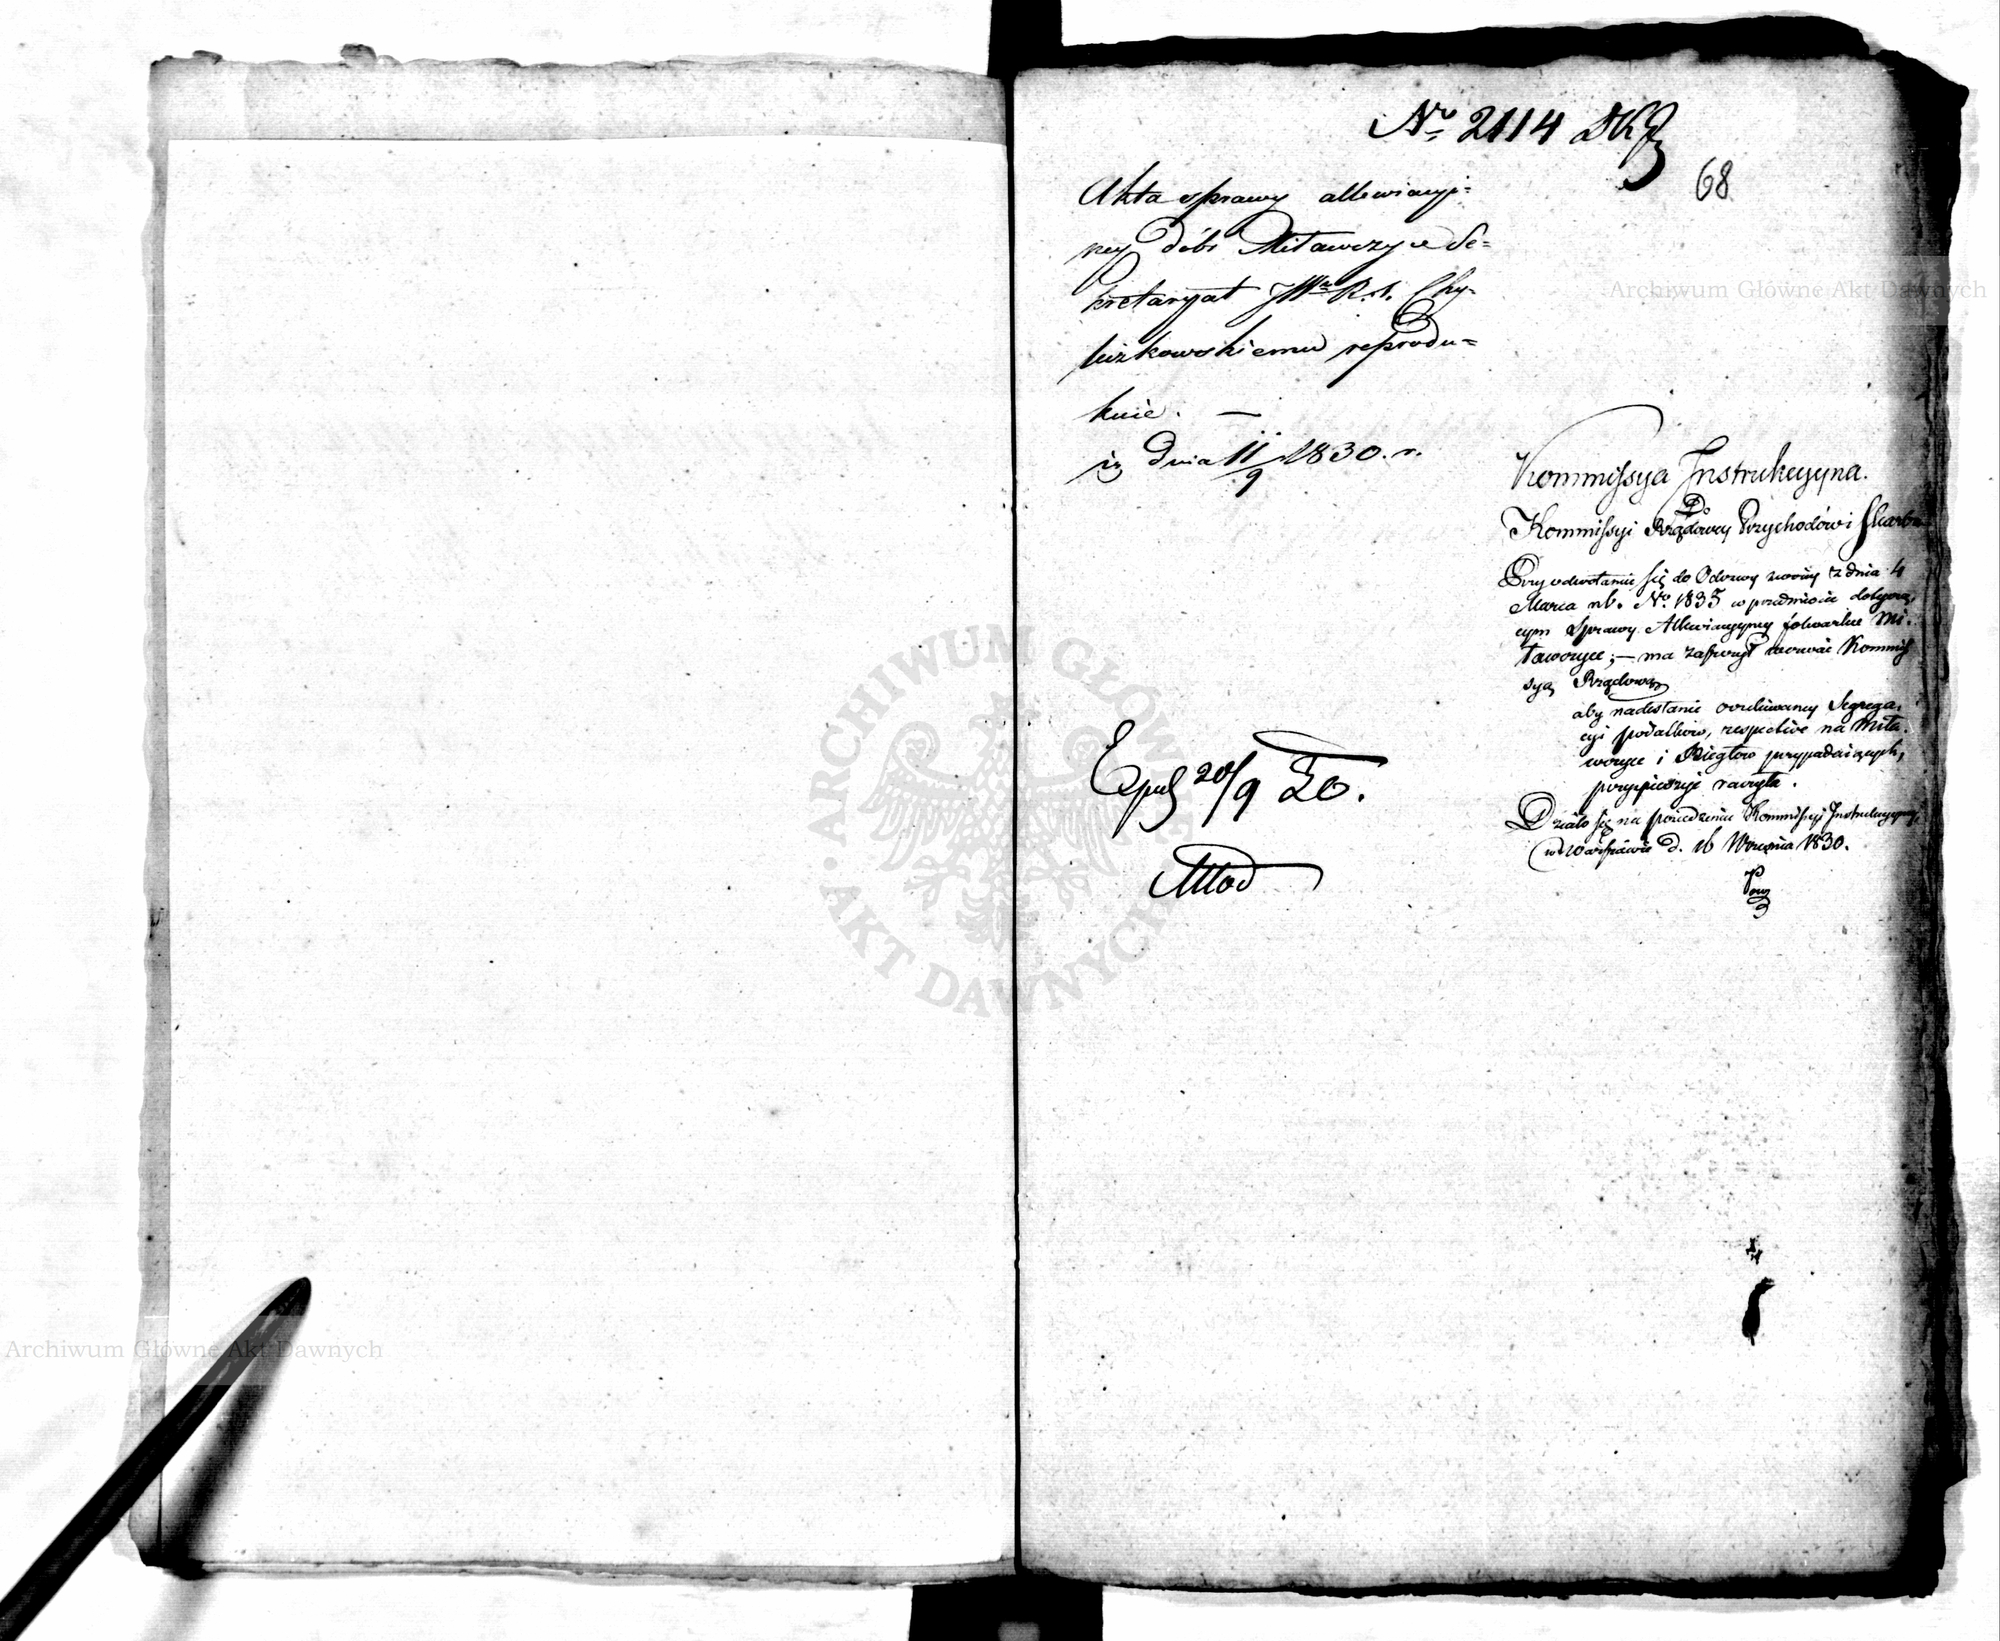 Nro 2114
68
Akta sprawy allewiacyi=
ney dóbr Miławczyce Se=
kretaryat JWu R. S. Chy=
liczkowskiemu reprodu=
kuie. —
d. Dnia 11/9 1830. r.
Kommissya Instrukcyyna.
Do
Kommissyi Rządowey Przychodów i Skarbu
Przy odwołaniu się do Odezwy swoiey z dnia 4
Marca rb. No. 1835 w przedmiocie dotyczą,
cym Sprawy Allewiacyyney folwarku Mi:
ławczyce; — ma zaszczyt wezwać Kommis
syą Rządową
aby nadesłanie oczekiwaney Segrega,
cyi podatków, respective na Miła,
wczyce i Kięgłow przypadaiących,
przyspieszyć raczyła.
Działo się na posiedzeniu Kommissyi Instrukcyyney
w Warszawie d. 16 Września 1830.
Exp. 20/9 30.
Młod
ARCHIWUM GŁÓWNE AKT DAWNYCH
Archiwum Główne Akt Dawnych
Archiwum Główne Akt Dawnych